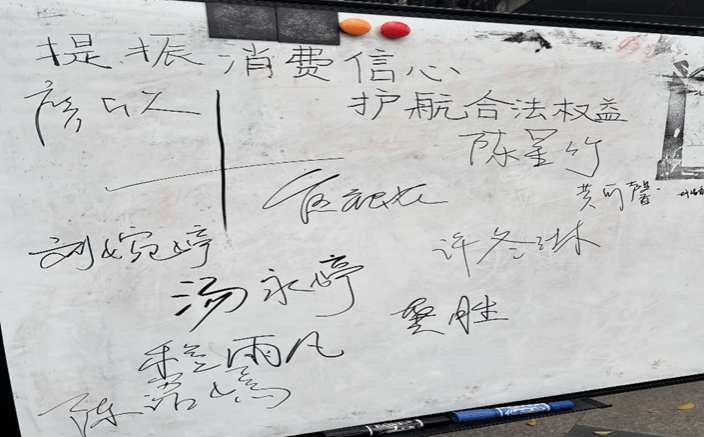 提振消费信心
护航合法权益
陈星竹
黄可馨
刘婉婷
许冬琳
汤永婷
龚胜
程雨凡
陈嘉嫣